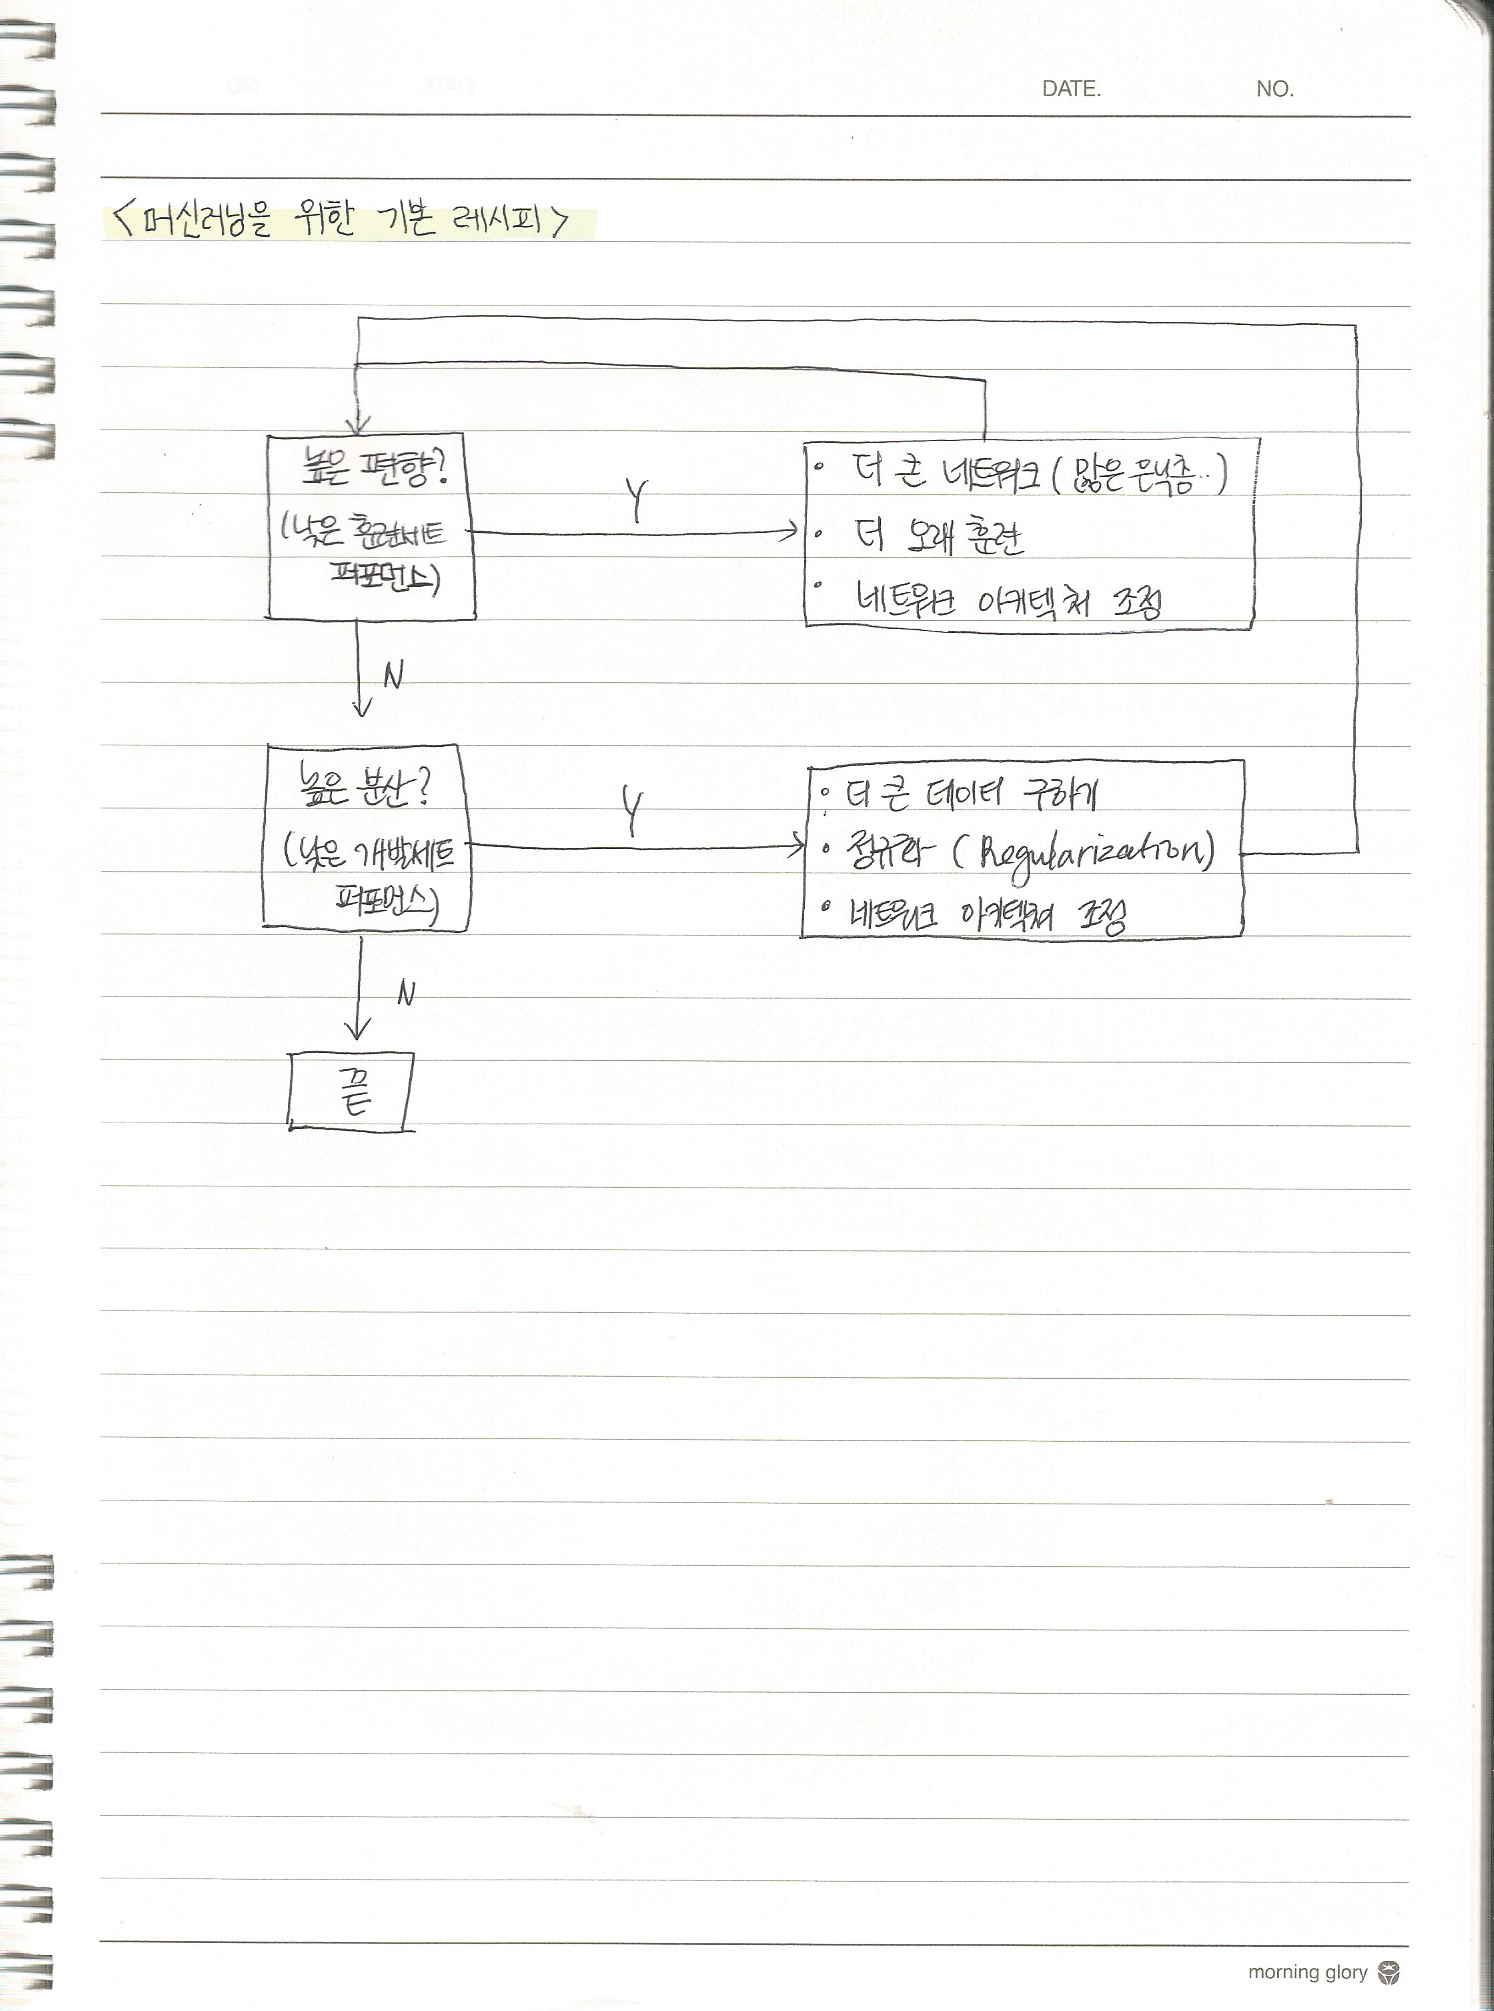 DATE. NO.
<머신러닝을 위한 기본 레시피>
높은 편향?
(낮은 훈련세트
퍼포먼스)
Y
• 더 큰 네트워크 (많은 은닉층..)
• 더 오래 훈련
• 네트워크 아키텍처 조정
N
높은 분산?
(낮은 개발세트
퍼포먼스)
Y
• 더 큰 데이터 구하기
• 정규화 (Regularization)
• 네트워크 아키텍처 조정
N
끝
morning glory